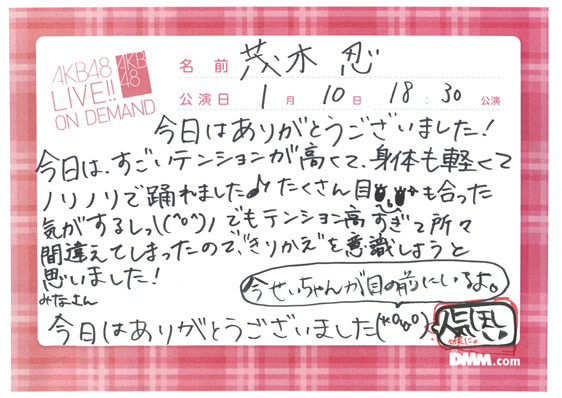 AKB48
LIVE!!
ON DEMAND
AKB
48
名前 茂木 忍
公演日 1月 10日 18:30 公演
今日はありがとうございました!
今日は、すごいテンションが高くて、身体も軽くて
ノリノリで踊れました♪ たくさん目も合った
気がするしっ(^o^)ノ でもテンション高すぎて所々
間違えてしまったので、"きりかえ"を意識しようと
思いました!
みなさん
今せいちゃんが目の前にいるよ。
今日はありがとうございました(*OωO)
DMM.com